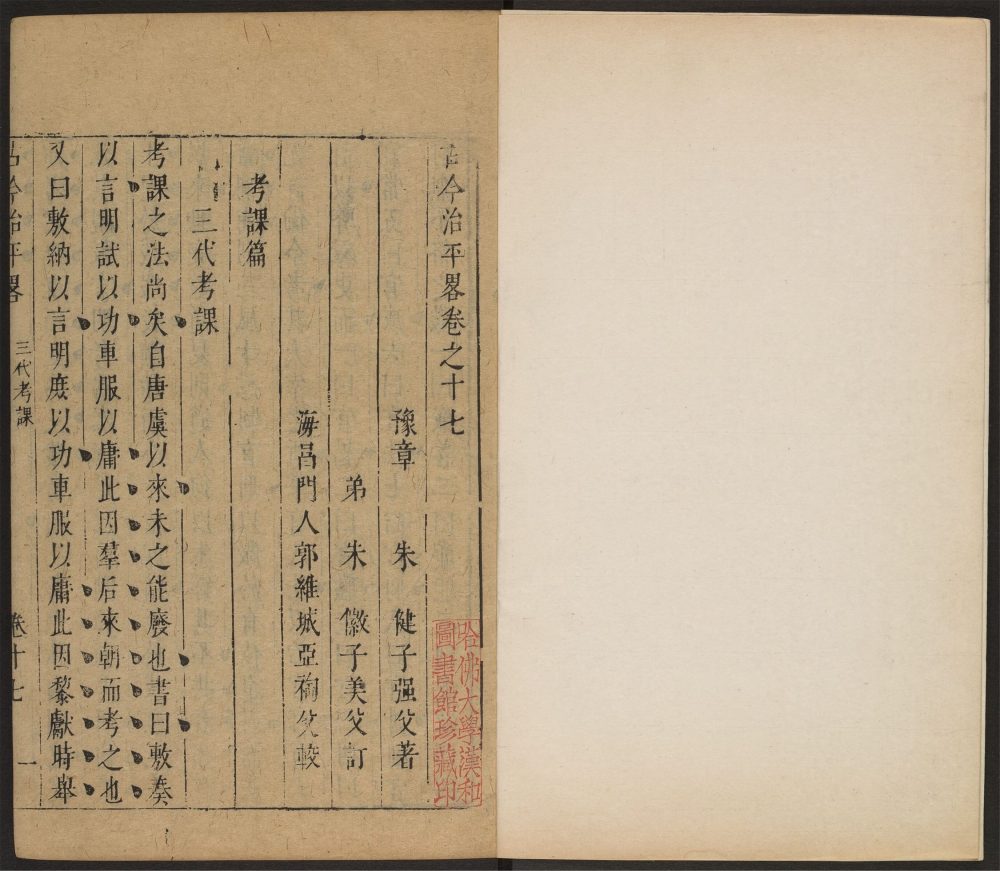 古今治平畧卷之十七
豫章 朱 健子强父著
弟 朱 徽子美父訂
海昌門人郭維城亞禰父較
考課篇
三代考課
考課之法尚矣自唐虞以來未之能廢也書曰敷奏
以言明試以功車服以庸此因羣后來朝而考之也
又曰敷納以言明庶以功車服以庸此因黎獻時舉
古今治平畧 三代考課 卷十七 一
哈佛大學漢和
圖書館珍藏印